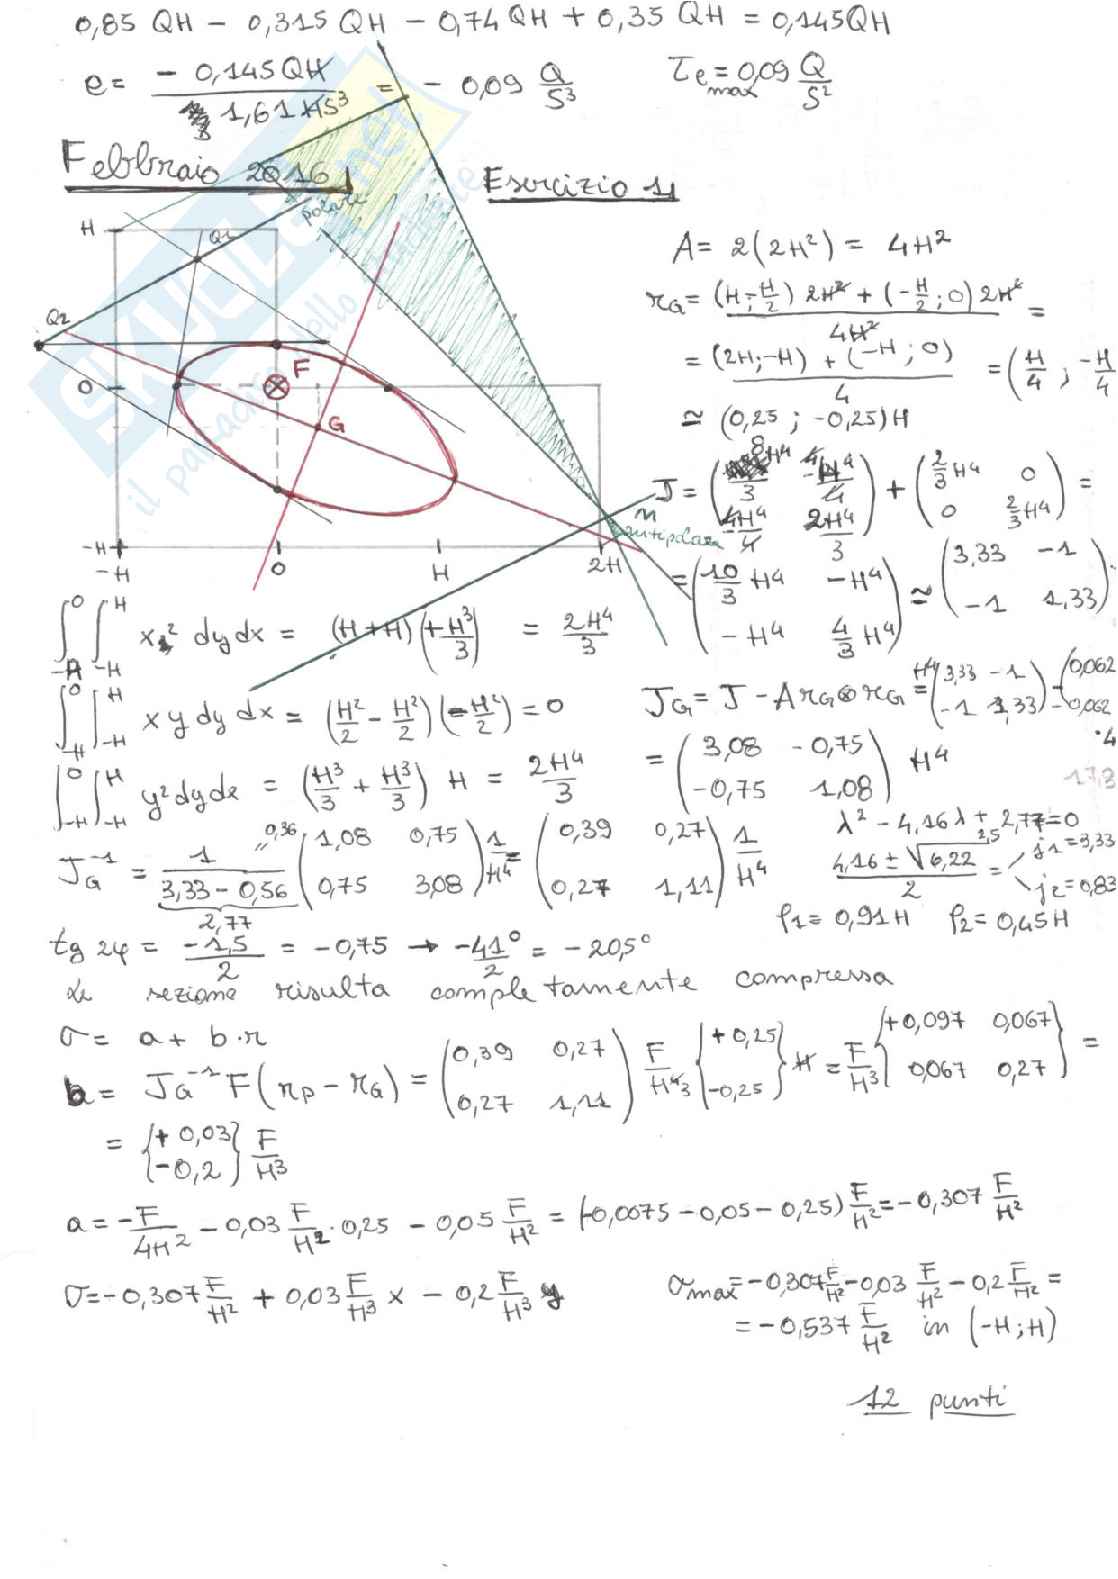 0,85 QH - 0,315 QH - 0,74 QH + 0,35 QH = 0,145QH
e = - 0,145QH / 1,61 HS³ = - 0,09 Q/S³
τe max = 0,09 Q/S²
Febbraio 2016 1
Esercizio 1
polare
H
Q1
Q2
0
F
G
-H
-H
0
H
2H
n
antipolare
A = 2(2H²) = 4H²
rG = (H; -H/2) 2H² + (-H/2; 0) 2H² / 4H² =
= (2H; -H) + (-H; 0) / 4 = (H/4 ; -H/4
≃ (0,25 ; -0,25)H
J = ( 8H⁴/3 -4H⁴/4 -4H⁴/4 2H⁴/3 ) + ( 2/3 H⁴ 0 0 2/3 H⁴ ) =
= ( 10/3 H⁴ -H⁴ -H⁴ 4/3 H⁴ ) ≃ ( 3,33 -1 -1 1,33 )
∫ 0 -H ∫ H -H x² dy dx = (H+H)(+H³/3) = 2H⁴/3
∫ 0 -H ∫ H -H x y dy dx = (H²/2 - H²/2)(-H²/2) = 0
∫ 0 -H ∫ H -H y² dy dx = (H³/3 + H³/3) H = 2H⁴/3
JG = J - A rG⊗rG = H⁴ ( 3,33 -1 -1 1,33 ) - ( 0,062 -0,062
·4
= ( 3,08 -0,75 -0,75 1,08 ) H⁴
JG⁻¹ = 1 / 3,33 - 0,56 ( 1,08 0,75 0,75 3,08 ) 1/H⁴ = ( 0,39 0,27 0,27 1,11 ) 1/H⁴
0,36
2,77
λ² - 4,16λ + 2,77 = 0
4,16 ± √6,22 / 2 = j1 = 3,33 j2 = 0,83
2,5
ρ1 = 0,91H ρ2 = 0,45H
tg 2φ = -1,5/2 = -0,75 → -41°/2 = -20,5°
La sezione risulta completamente compressa
σ = a + b·r
b = JG⁻¹ F (rP - rG) = ( 0,39 0,27 0,27 1,11 ) F/H⁴3 { +0,25 -0,25 } H = F/H³ { +0,097 0,067 0,067 0,27 } =
= { +0,03 -0,2 } F/H³
a = -F/4H² - 0,03 F/H² · 0,25 - 0,05 F/H² = (-0,0075 - 0,05 - 0,25) F/H² = -0,307 F/H²
σ = -0,307 F/H² + 0,03 F/H³ x - 0,2 F/H³ y
σmax = -0,307 F/H² - 0,03 F/H² - 0,2 F/H² =
= -0,537 F/H² in (-H; H)
12 punti